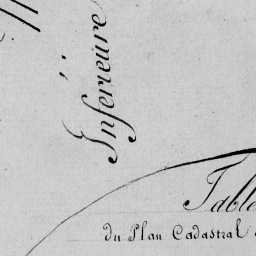 Inférieure
Table
du Plan Cadastral